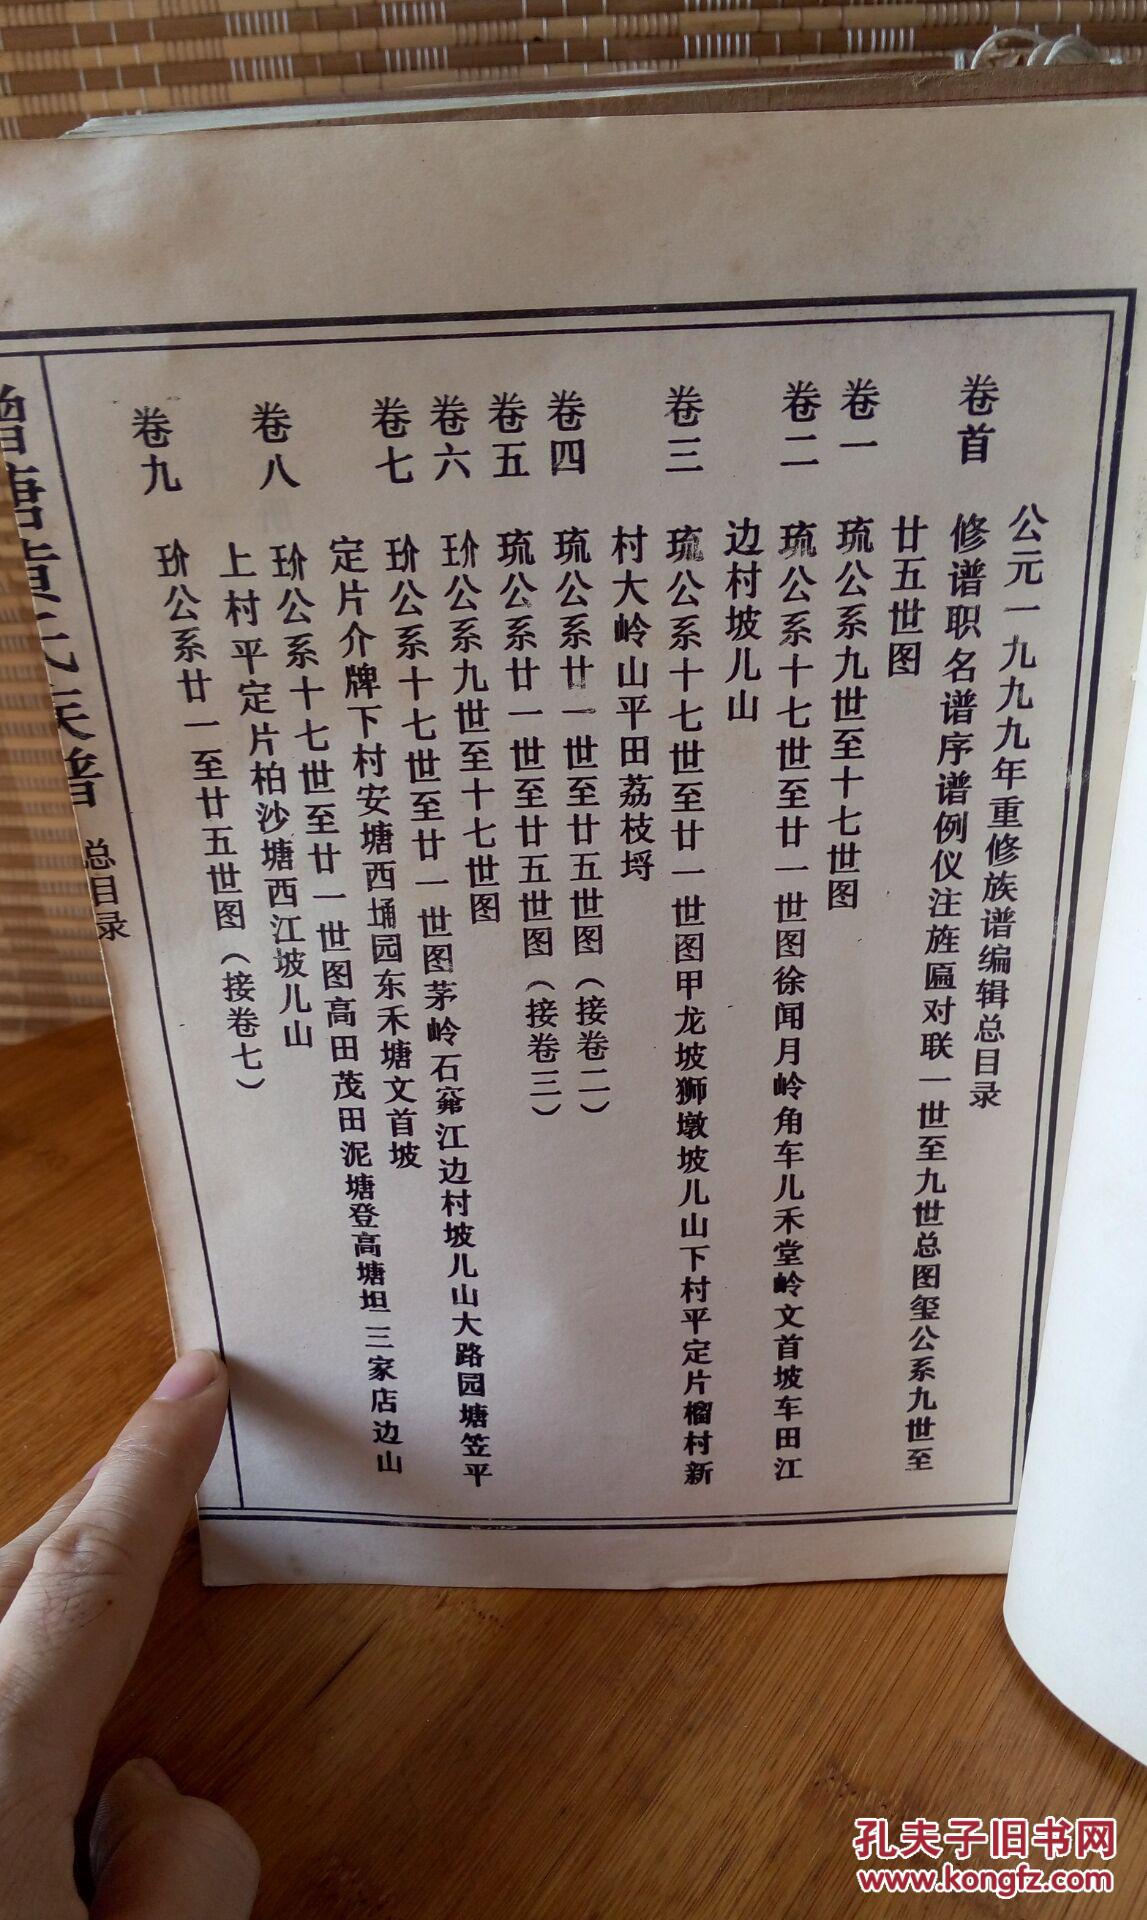 公元一九九九年重修族谱编辑总目录
卷首 修谱职名谱序谱例仪注旌匾对联一世至九世总图玺公系九世至
廿五世图
卷一 琉公系九世至十七世图
卷二 琉公系十七世至廿一世图徐闻月岭角车儿禾堂岭文首坡车田江
边村坡儿山
卷三 琉公系十七世至廿一世图甲龙坡狮墩坡儿山下村平定片榴村新
村大岭山平田荔枝埒
卷四 琉公系廿一世至廿五世图（接卷二）
卷五 琉公系廿一世至廿五世图（接卷三）
卷六 玠公系九世至十七世图
卷七 玠公系十七世至廿一世图茅岭石窝江边村坡儿山大路园塘笠平
定片介牌下村安塘西埇园东禾塘文首坡
卷八 玠公系十七世至廿一世图高田茂田泥塘登高塘坦三家店边山
上村平定片柏沙塘西江坡儿山
卷九 玠公系廿一至廿五世图（接卷七）
塘黄氏族谱 总目录
孔夫子旧书网
www.kongfz.com